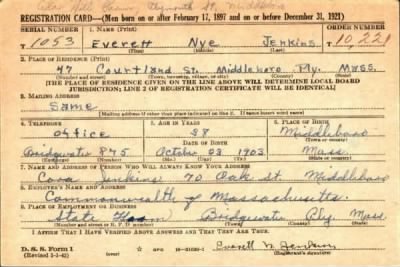 REGISTRATION CARD—(Men born on or after February 17, 1897 and on or before December 31, 1921)
SERIAL NUMBER 1. NAME (Print) ORDER NUMBER
T 1053 Everett Nye Jenkins T 10,221
(First) (Middle) (Last)
2. PLACE OF RESIDENCE (Print)
47 Courtland St. Middleboro Ply. Mass.
(Number and street) (Town, township, village, or city) (County) (State)
[THE PLACE OF RESIDENCE GIVEN ON THE LINE ABOVE WILL DETERMINE LOCAL BOARD
JURISDICTION; LINE 2 OF REGISTRATION CERTIFICATE WILL BE IDENTICAL]
3. MAILING ADDRESS
Same
[Mailing address if other than place indicated on line 2. If same insert word same]
4. TELEPHONE 5. AGE IN YEARS 6. PLACE OF BIRTH
Office 38 Middleboro
DATE OF BIRTH (Town or county)
Bridgewater 875 October 23 1903 Mass.
(Exchange) (Number) (Mo.) (Day) (Yr.) (State or country)
7. NAME AND ADDRESS OF PERSON WHO WILL ALWAYS KNOW YOUR ADDRESS
Cora Jenkins 70 Oak St. Middleboro
8. EMPLOYER'S NAME AND ADDRESS
Commonwealth of Massachusetts
9. PLACE OF EMPLOYMENT OR BUSINESS
State Bridgewater Ply. Mass.
(Number and street or R. F. D. number) (Town) (County) (State)
I AFFIRM THAT I HAVE VERIFIED ABOVE ANSWERS AND THAT THEY ARE TRUE.
D. S. S. Form 1 Everett N. Jenkins
(Revised 1-1-42) (over) (Registrant's signature)